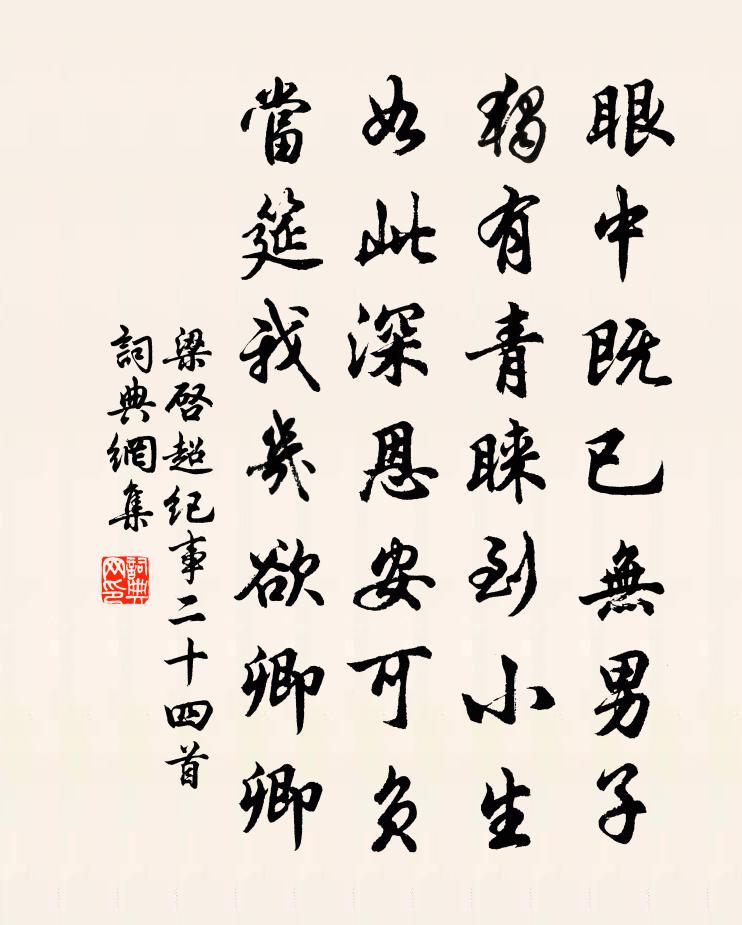 眼中既已無男子
獨有青睞到小生
如此深恩安可負
當筵我幾欲卿卿
梁啓超纪事二十四首
詞典網集
詞典
网印